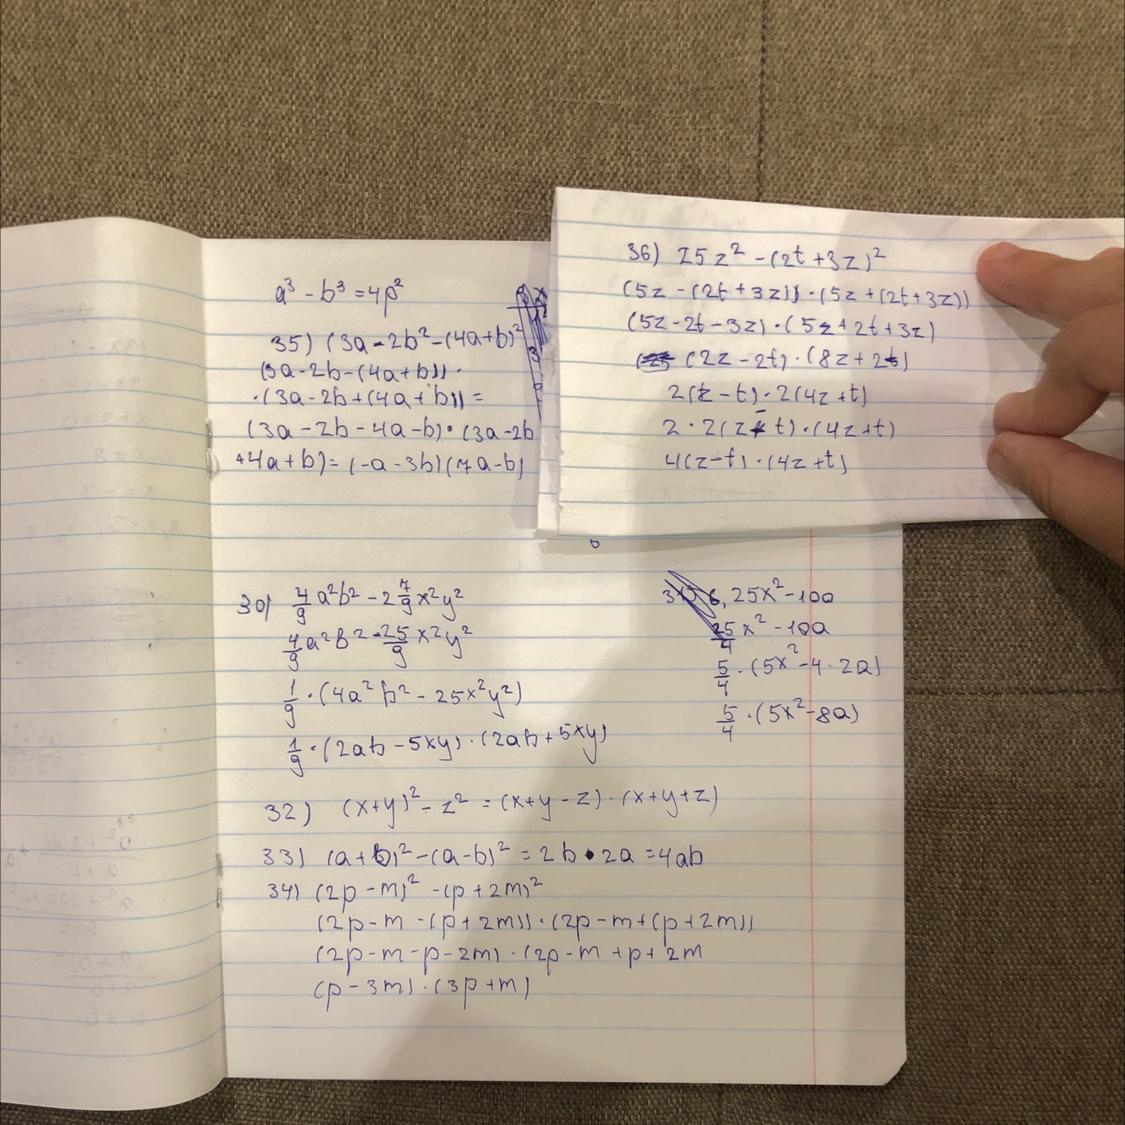 a³ - b³ = 4p²
35) (3a - 2b² - (4a + b)²
(3a - 2b - (4a + b)) ·
· (3a - 2b + (4a + b)) =
(3a - 2b - 4a - b) · (3a - 2b
+ 4a + b) = (-a - 3b)(7a - b)
36) 25z² - (2t + 3z)²
(5z - (2t + 3z)) · (5z + (2t + 3z))
(5z - 2t - 3z) · (5z + 2t + 3z)
(2z - 2t) · (8z + 2t)
2(z - t) · 2(4z + t)
2 · 2(z - t) · (4z + t)
4(z - t) · (4z + t)
30) 4/9 a²b² - 2 7/9 x²y²
4/9 a²b² - 25/9 x²y²
1/9 · (4a²b² - 25x²y²)
1/9 · (2ab - 5xy) · (2ab + 5xy)
6,25x² - 10a
25/4 x² - 10a
5/4 · (5x² - 4 · 2a)
5/4 · (5x² - 8a)
32) (x + y)² - z² = (x + y - z) · (x + y + z)
33) (a + b)² - (a - b)² = 2b · 2a = 4ab
34) (2p - m)² - (p + 2m)²
(2p - m - (p + 2m)) · (2p - m + (p + 2m))
(2p - m - p - 2m) · (2p - m + p + 2m
(p - 3m) · (3p + m)